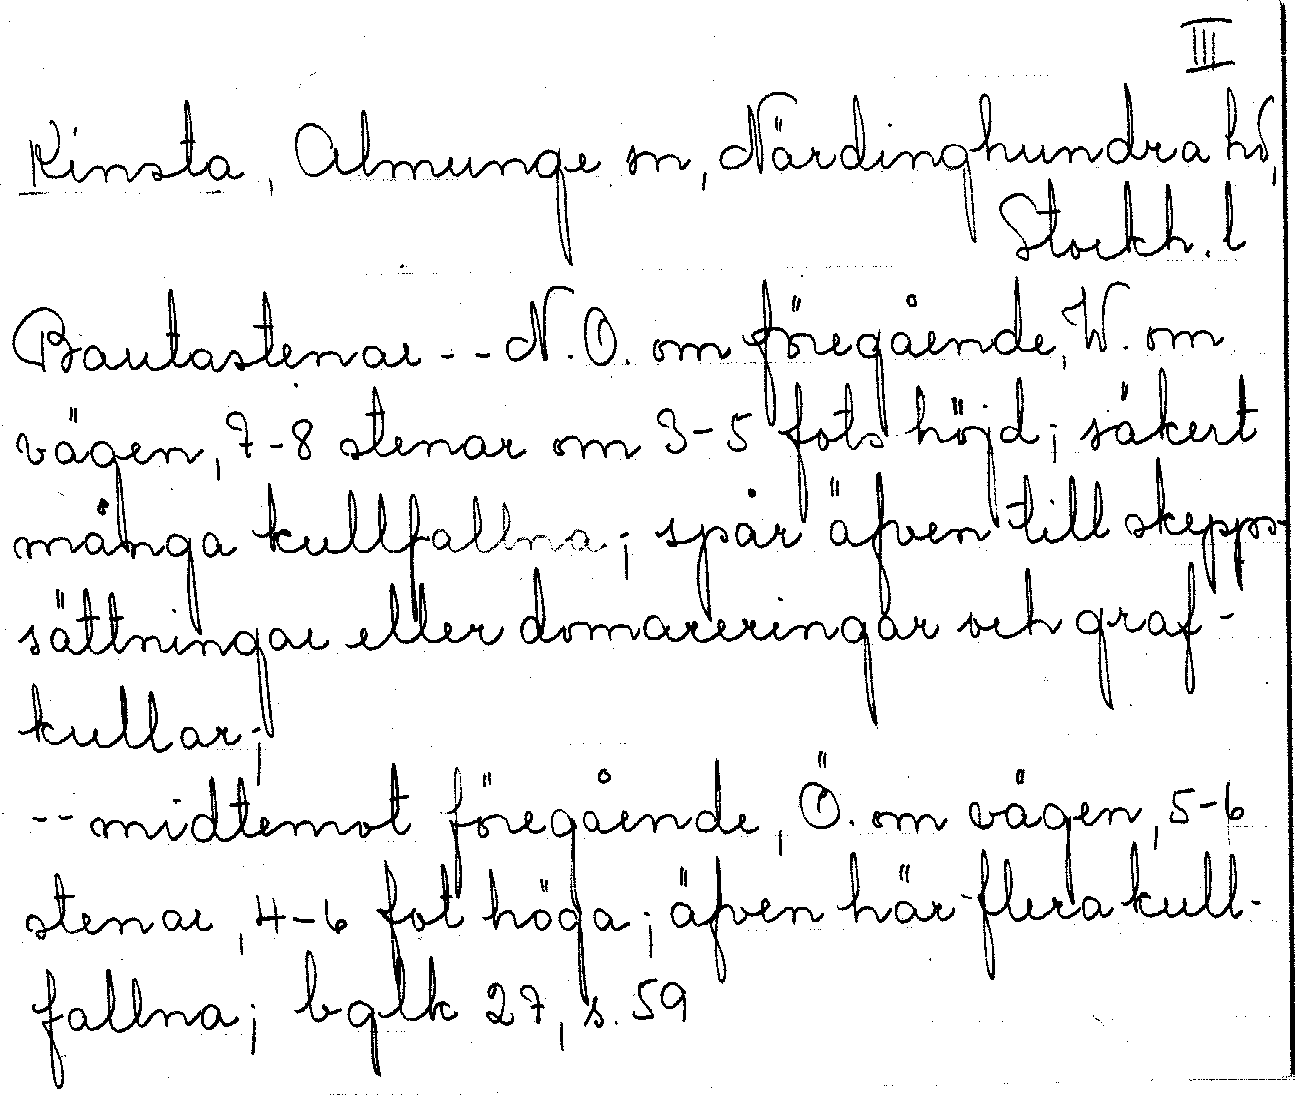 III
Kinsta, Almunge sn, Närdinghundra hd,
Stockh. l
Bautastenar -- N.O. om föregående, W. om
vägen, 7-8 stenar om 3-5 fots höjd; säkert
många kullfallna; spår äfven till skepps-
sättningar eller domareringar och graf-
kullar;
-- midtemot föregående, Ö. om vägen, 5-6
stenar, 4-6 fot höga; äfven här flera kull-
fallna; bglk 27, s. 59